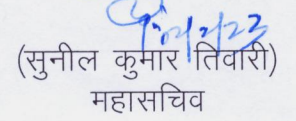 (सुनील कुमार तिवारी)
महासचिव